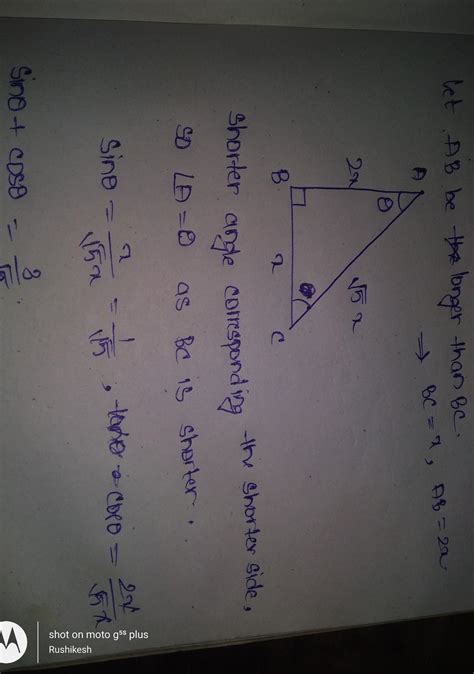 Let AB be the longer than BC.
→ BC = x, AB = 2x
A
θ
2x
√5 x
B
x
C
shorter angle corresponding the shorter side,
so ∠A = θ as BC is shorter.
sinθ = x/√5x = 1/√5, cosθ = 2x/√5x
sinθ + cosθ = 3/√5
shot on moto g⁵ˢ plus
Rushikesh